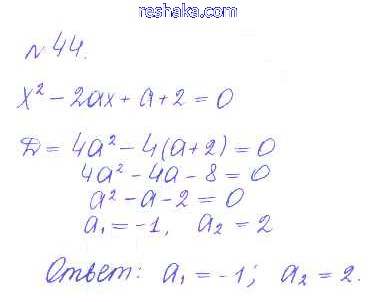 reshaka.com
N44.
x² - 2ax + a + 2 = 0
D = 4a² - 4(a+2) = 0
4a² - 4a - 8 = 0
a² - a - 2 = 0
a₁ = -1, a₂ = 2
Ответ: a₁ = -1; a₂ = 2.